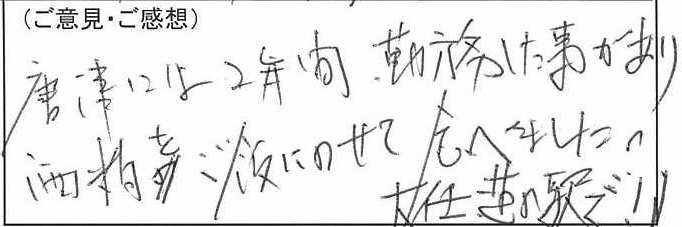 （ご意見・ご感想）
唐津には2年間 勤務した事があり
酒粕をご飯にのせて食べました。
大任道の駅で!!